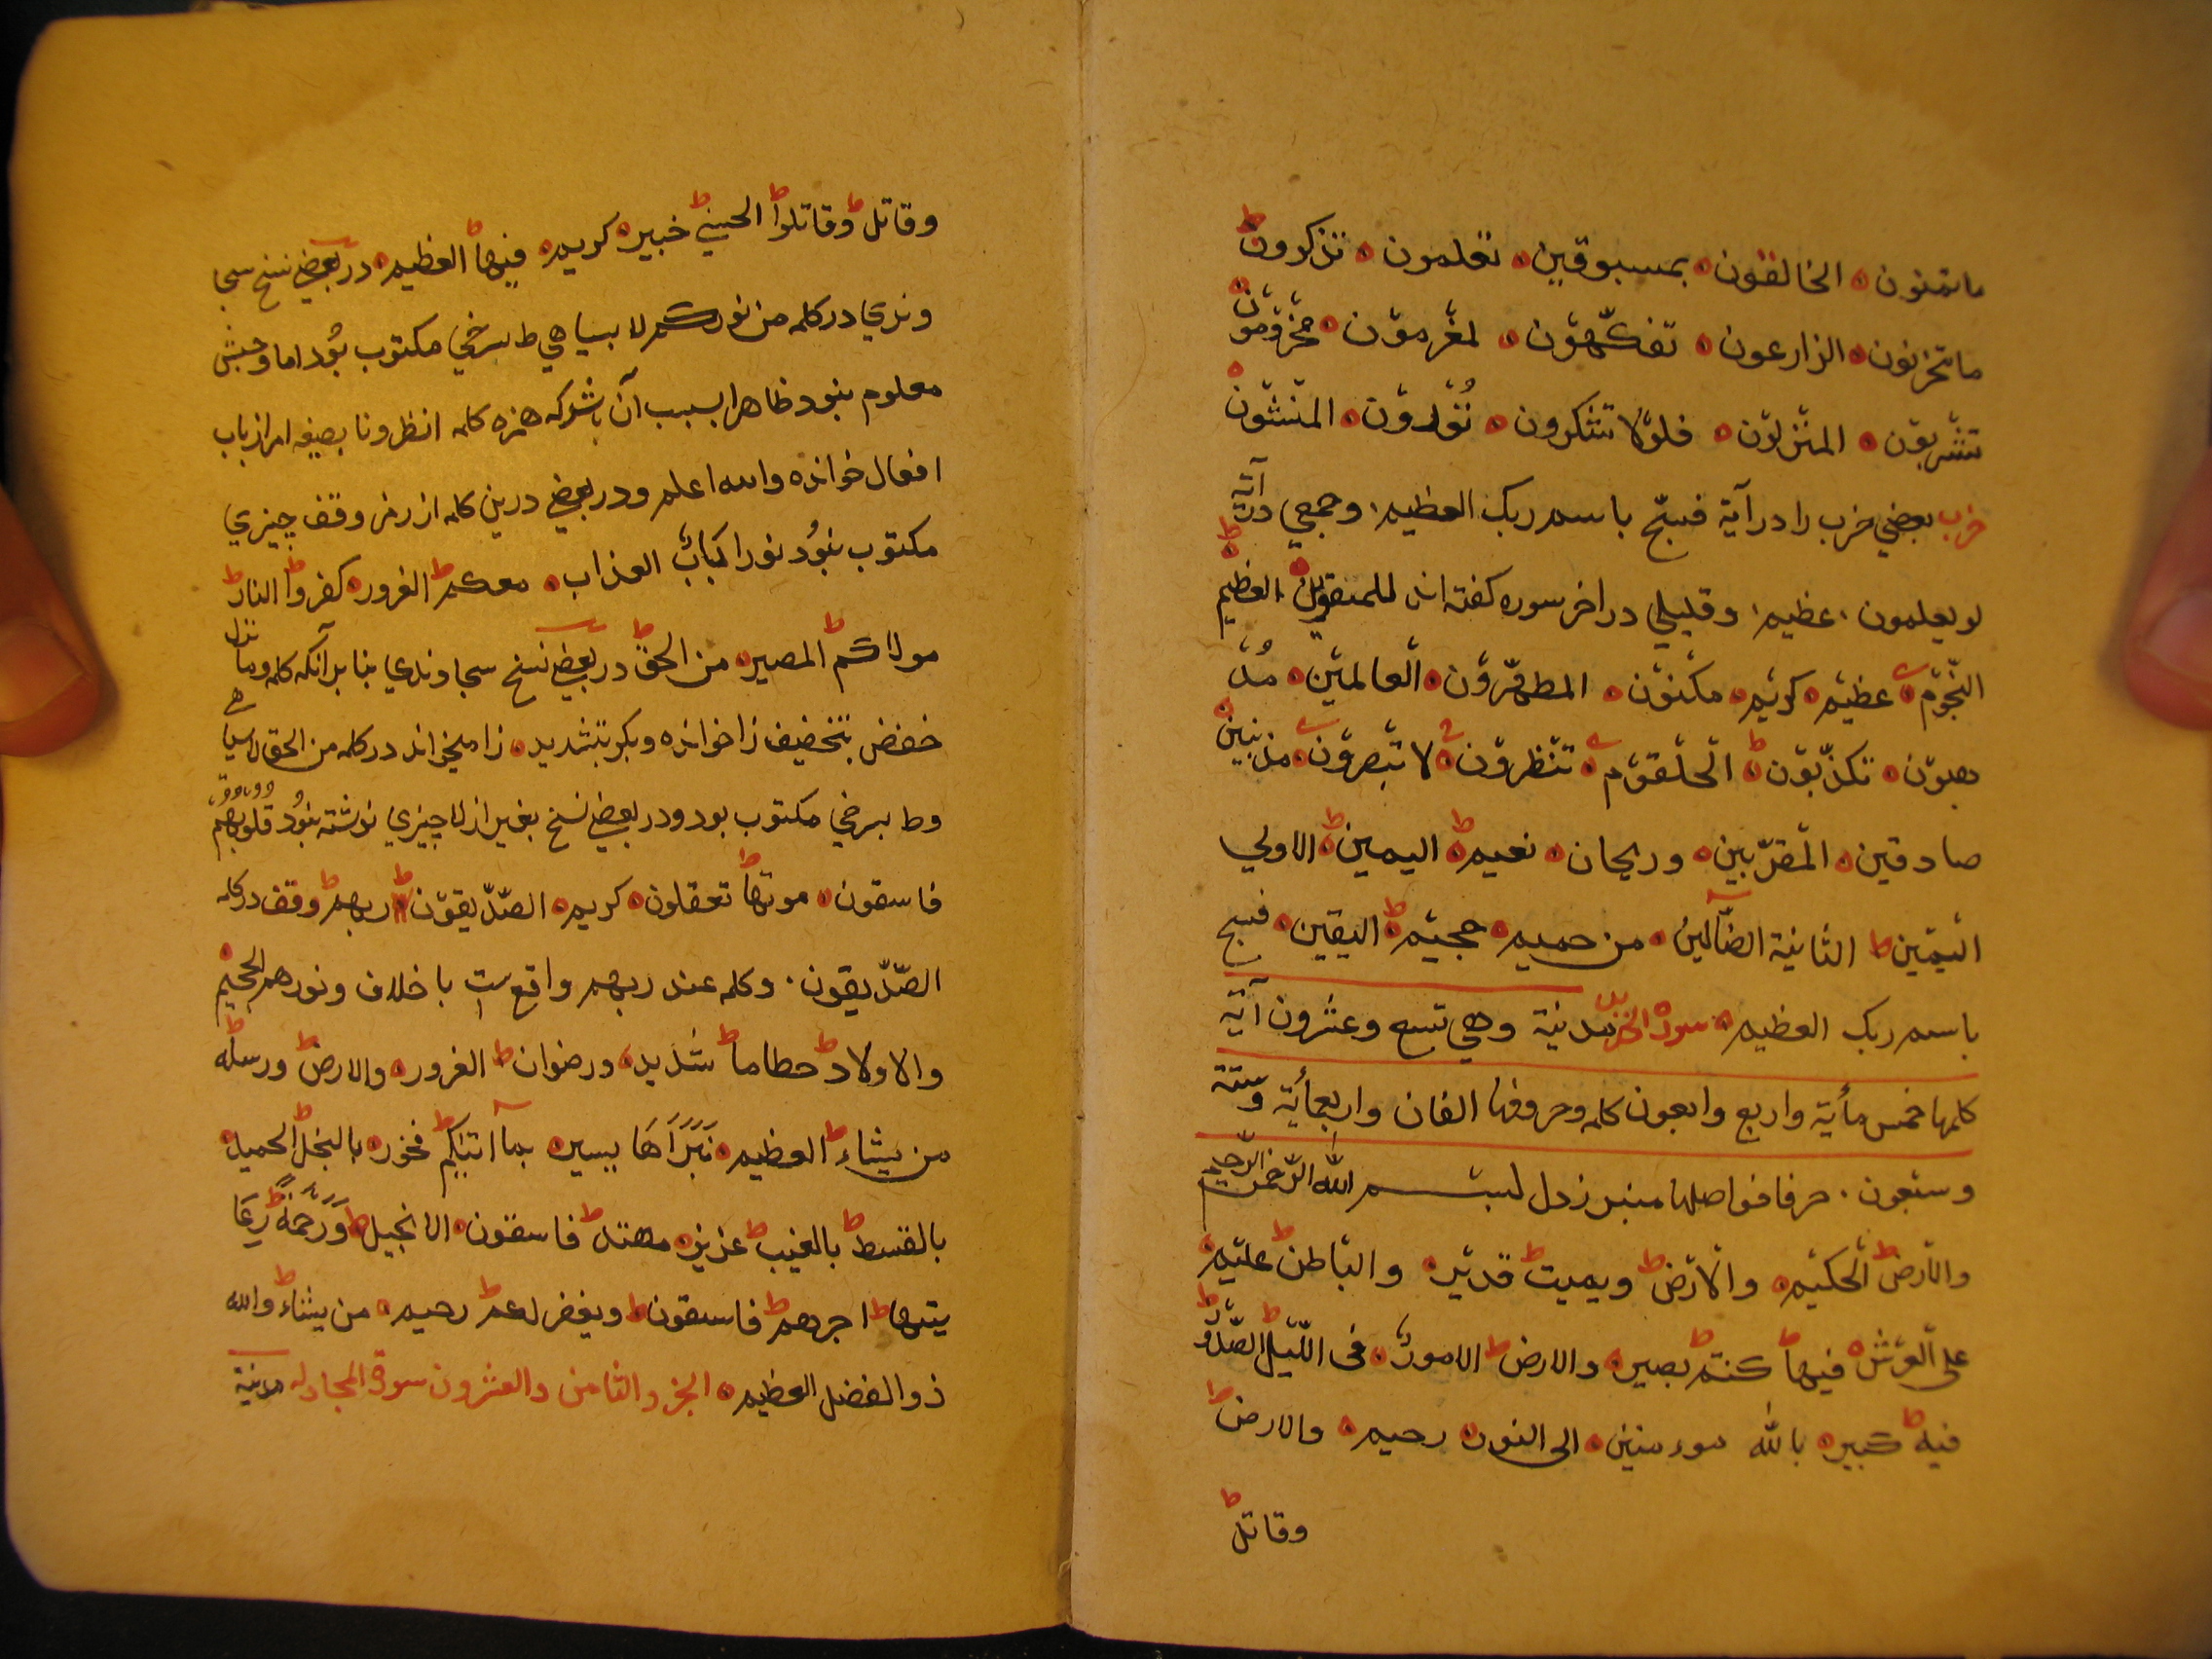 ما تمنون ه الخالقون ه بمسبوقين ه تعلمون ه تذكرون ط
ما تحرثون ه الزارعون ه تفكّهون ه لمغرمون ه محرومون ه
تشربون ه المنزلون ه فلولا تشكرون ه تُورون ه المنشئون ه
حزب بعضي حزب را در آية فسبّح باسم ربك العظيم ه وجمعي در آية
لو يعلمون ه عظيم ه وقليلي در اخر سوره كفته اند للمقوين ه العظيم ه ط
النّجوم عظيم ه كريم ه مكنون ه المطهّرون ه العالمين ه مُد
هنون ه تكذّبون ه ط الحلقوم ه تنظرون ه لا تبصرون ه مدينين ه
صادقين ه المقرّبين ه وريحان ه نعيم ه ط اليمين ه ط الاولي
اليمين ط الثانية الضّالّين ه من حميم ه جحيم ه ط اليقين ه فسبح
باسم ربك العظيم ه سورة الحديد مدنية وهي تسع وعشرون آية
كلمها خمس مأية واربع واربعون كلمه وحروفها الفان واربعمأية وستة
وسبعون ه حرفا فواصلها منبر زدل بسم الله الرّحمن الرّحيم
والارض ط الحكيم ه والارض ط ويميت ط قدير ه والباطن ط عليم ه
على العرش ط فيها ط كنتم ط بصير ه والارض ط الامور ه فى اللّيل ط الصّدور ط
فيه ط كبير ه بالله مومنين ه الى النور ه رحيم ه والارض ط
وقاتل ط
وقاتل ط وقاتلوا ط الحسني ط خبير ه كريم ه فيها ط العظيم ه در بعضي نسخ سجا
وندي در كلمه من نوركم لا بسياهي ط بسرخي مكتوب بُود اما وجهش
معلوم نبود ظاهرا بسبب آن باشد كه همزه كلمه انظرونا بصيغه امر از باب
افعال خوانده والله اعلم ودر بعضي درين كلمه از رمز وقف چيزي
مكتوب نبُود نورا ط باب العذاب ه معكم ط الغرور ه كفروا ط النار ط
مولاكم ط المصير ه من الحق ط در بعضي نسخ سجاوندي بنا بر آنكه كلمه وما نزل
حفص بتخفيف زا خوانده وبكر بتشديد ه زا ميخواند در كلمه من الحق لا بسياهي
وط بسرخي مكتوب بود ودر بعضي نسخ بغير از لا چيزي نوشته نبُود قلوبهم ط
فاسقون ه موتها ط تعقلون ه كريم ه الصّدّيقون ه ط ربهم ط وقف در كلمه
الصّدّيقون ه وكلمه عند ربهم واقع ست با خلاف ونورهم الجحيم ه
والاولاد ط حطاما ط شديد ه ورضوان ط الغرور ه والارض ط ورسله ط
من يشاء ط العظيم ه نَبْرَأَهَا يسير ه بما اتيكم ط فخور ه بالبخل ط الحميد ه
بالقسط ط بالغيب ط عزيز ه مهتد ط فاسقون ه الانجيل ط وَرَحْمَةً ط رِعَا
يتها ط اجرهم ط فاسقون ه ويغفر لكم ط رحيم ه من يشاء ط والله
ذو الفضل العظيم ه الجزو الثامن والعشرون سورة المجادله مدنية